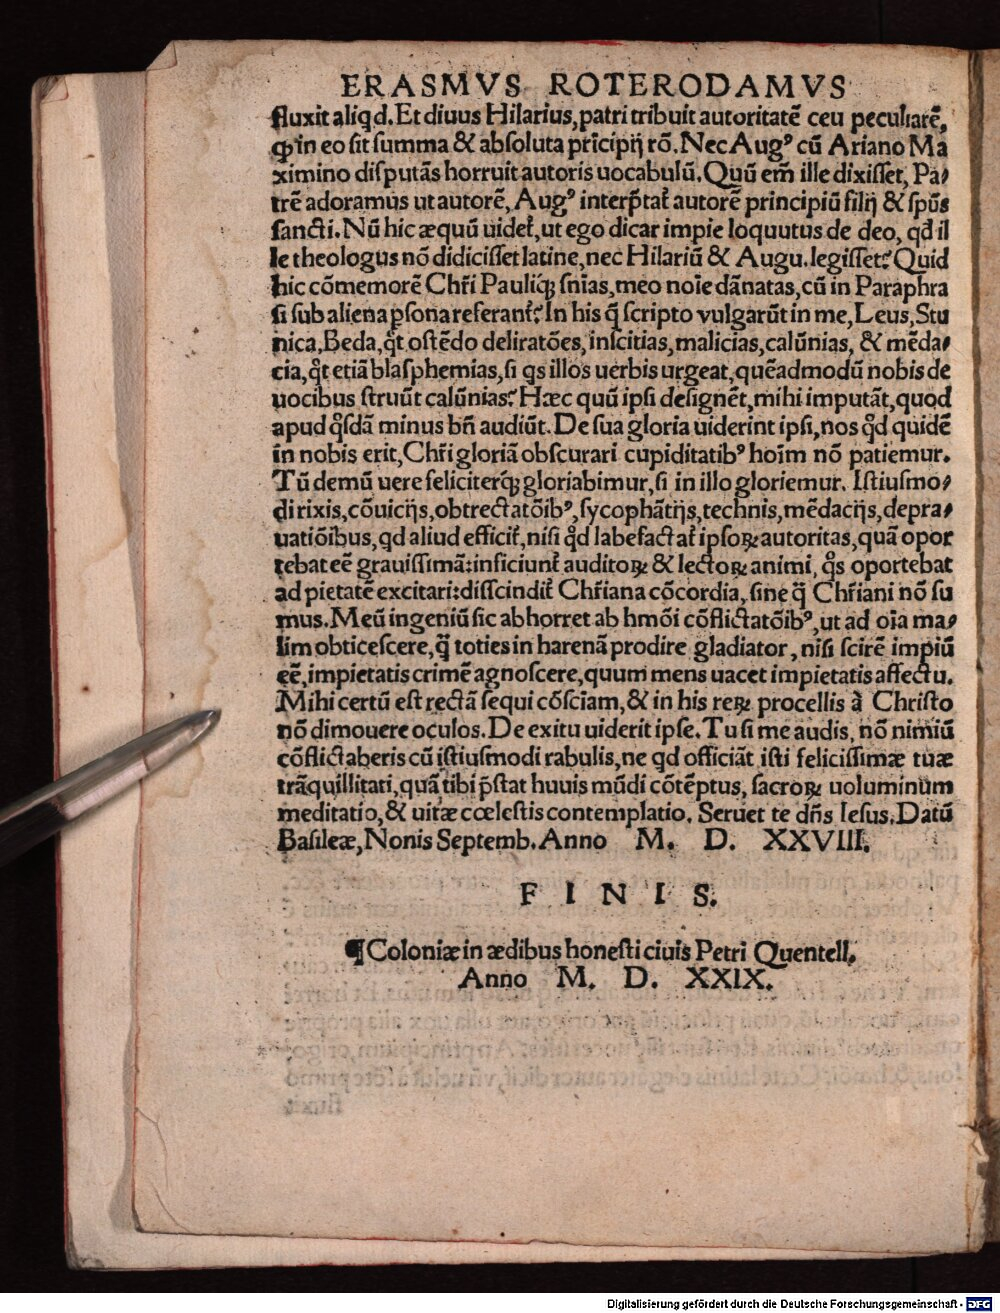 ERASMVS ROTERODAMVS
fluxit aliqd. Et diuus Hilarius, patri tribuit autoritatē ceu peculiarē,
ꝙ in eo sit summa & absoluta prīcipij rō. Nec Augꝰ cū Ariano Ma
ximino disputās horruit autoris uocabulū. Quū em̄ ille dixisset, Pa-
trē adoramus ut autorē, Augꝰ interp̄tat᷑ autorē principiū filij & spūs
sancti. Nū hic æquū uidet᷑, ut ego dicar impie loquutus de deo, qđ il
le theologus nō didicisset latine, nec Hilariū & Augu. legisset? Quid
hic cōmemorē Chr̄i Pauliq́ꝫ sn̄ias, meo noīe dānatas, cū in Paraphra
si sub aliena ꝑsona referant᷑? In his q̄ scripto vulgarūt in me, Leus, Stu
nica, Beda, qͦt ostēdo deliratōes, inscitias, malicias, calūnias, & mēda-
cia, qͦt etiā blasphemias, si qs illos uerbis urgeat, quēadmodū nobis de
uocibus struūt calūnias? Hæc quū ipsi designēt, mihi imputāt, quod
apud qͦsdā minus bn̄ audiūt. De sua gloria uiderint ipsi, nos qͦd quidē
in nobis erit, Chr̄i gloriā obscurari cupiditatibꝰ hoīm nō patiemur.
Tū demū uere feliciterq́ꝫ gloriabimur, si in illo gloriemur. Istiusmo-
di rixis, cōuicijs, obtrectatōibꝰ, sycophātijs, technis, mēdacijs, depra-
uatiōibus, qd aliud efficit᷑, nisi qͦd labefactat᷑ ipsoꝝ autoritas, quā opor
tebat eē grauissimā: inficiunt᷑ auditoꝝ & lectoꝝ animi, qͦs oportebat
ad pietatē excitari: disscindit᷑ Chr̄iana cōcordia, sine q̄ Chr̄iani nō su
mus. Meū ingeniū sic abhorret ab hmōi cōflictatōibꝰ, ut ad oīa ma-
lim obticescere, q̄ toties in harenā prodire gladiator, nisi scirē impiū
eē, impietatis crimē agnoscere, quum mens uacet impietatis affectu.
Mihi certū est rectā sequi cōsciam, & in his reꝝ procellis à Christo
nō dimouere oculos. De exitu uiderit ipse. Tu si me audis, nō nimiū
cōflictaberis cū istiusmodi rabulis, ne qd officiāt isti felicissimæ tuæ
trāquillitati, quā tibi p̄stat huuis mūdi cōtēptus, sacroꝝ uoluminum
meditatio, & uitæ cœlestis contemplatio. Seruet te dn̄s Iesus. Datū
Basileæ, Nonis Septemb. Anno M. D. XXVIII.
F I N I S.
¶ Coloniæ in ædibus honesti ciuis Petri Quentell.
Anno M. D. XXIX.
Digitalisierung gefördert durch die Deutsche Forschungsgemeinschaft - DFG